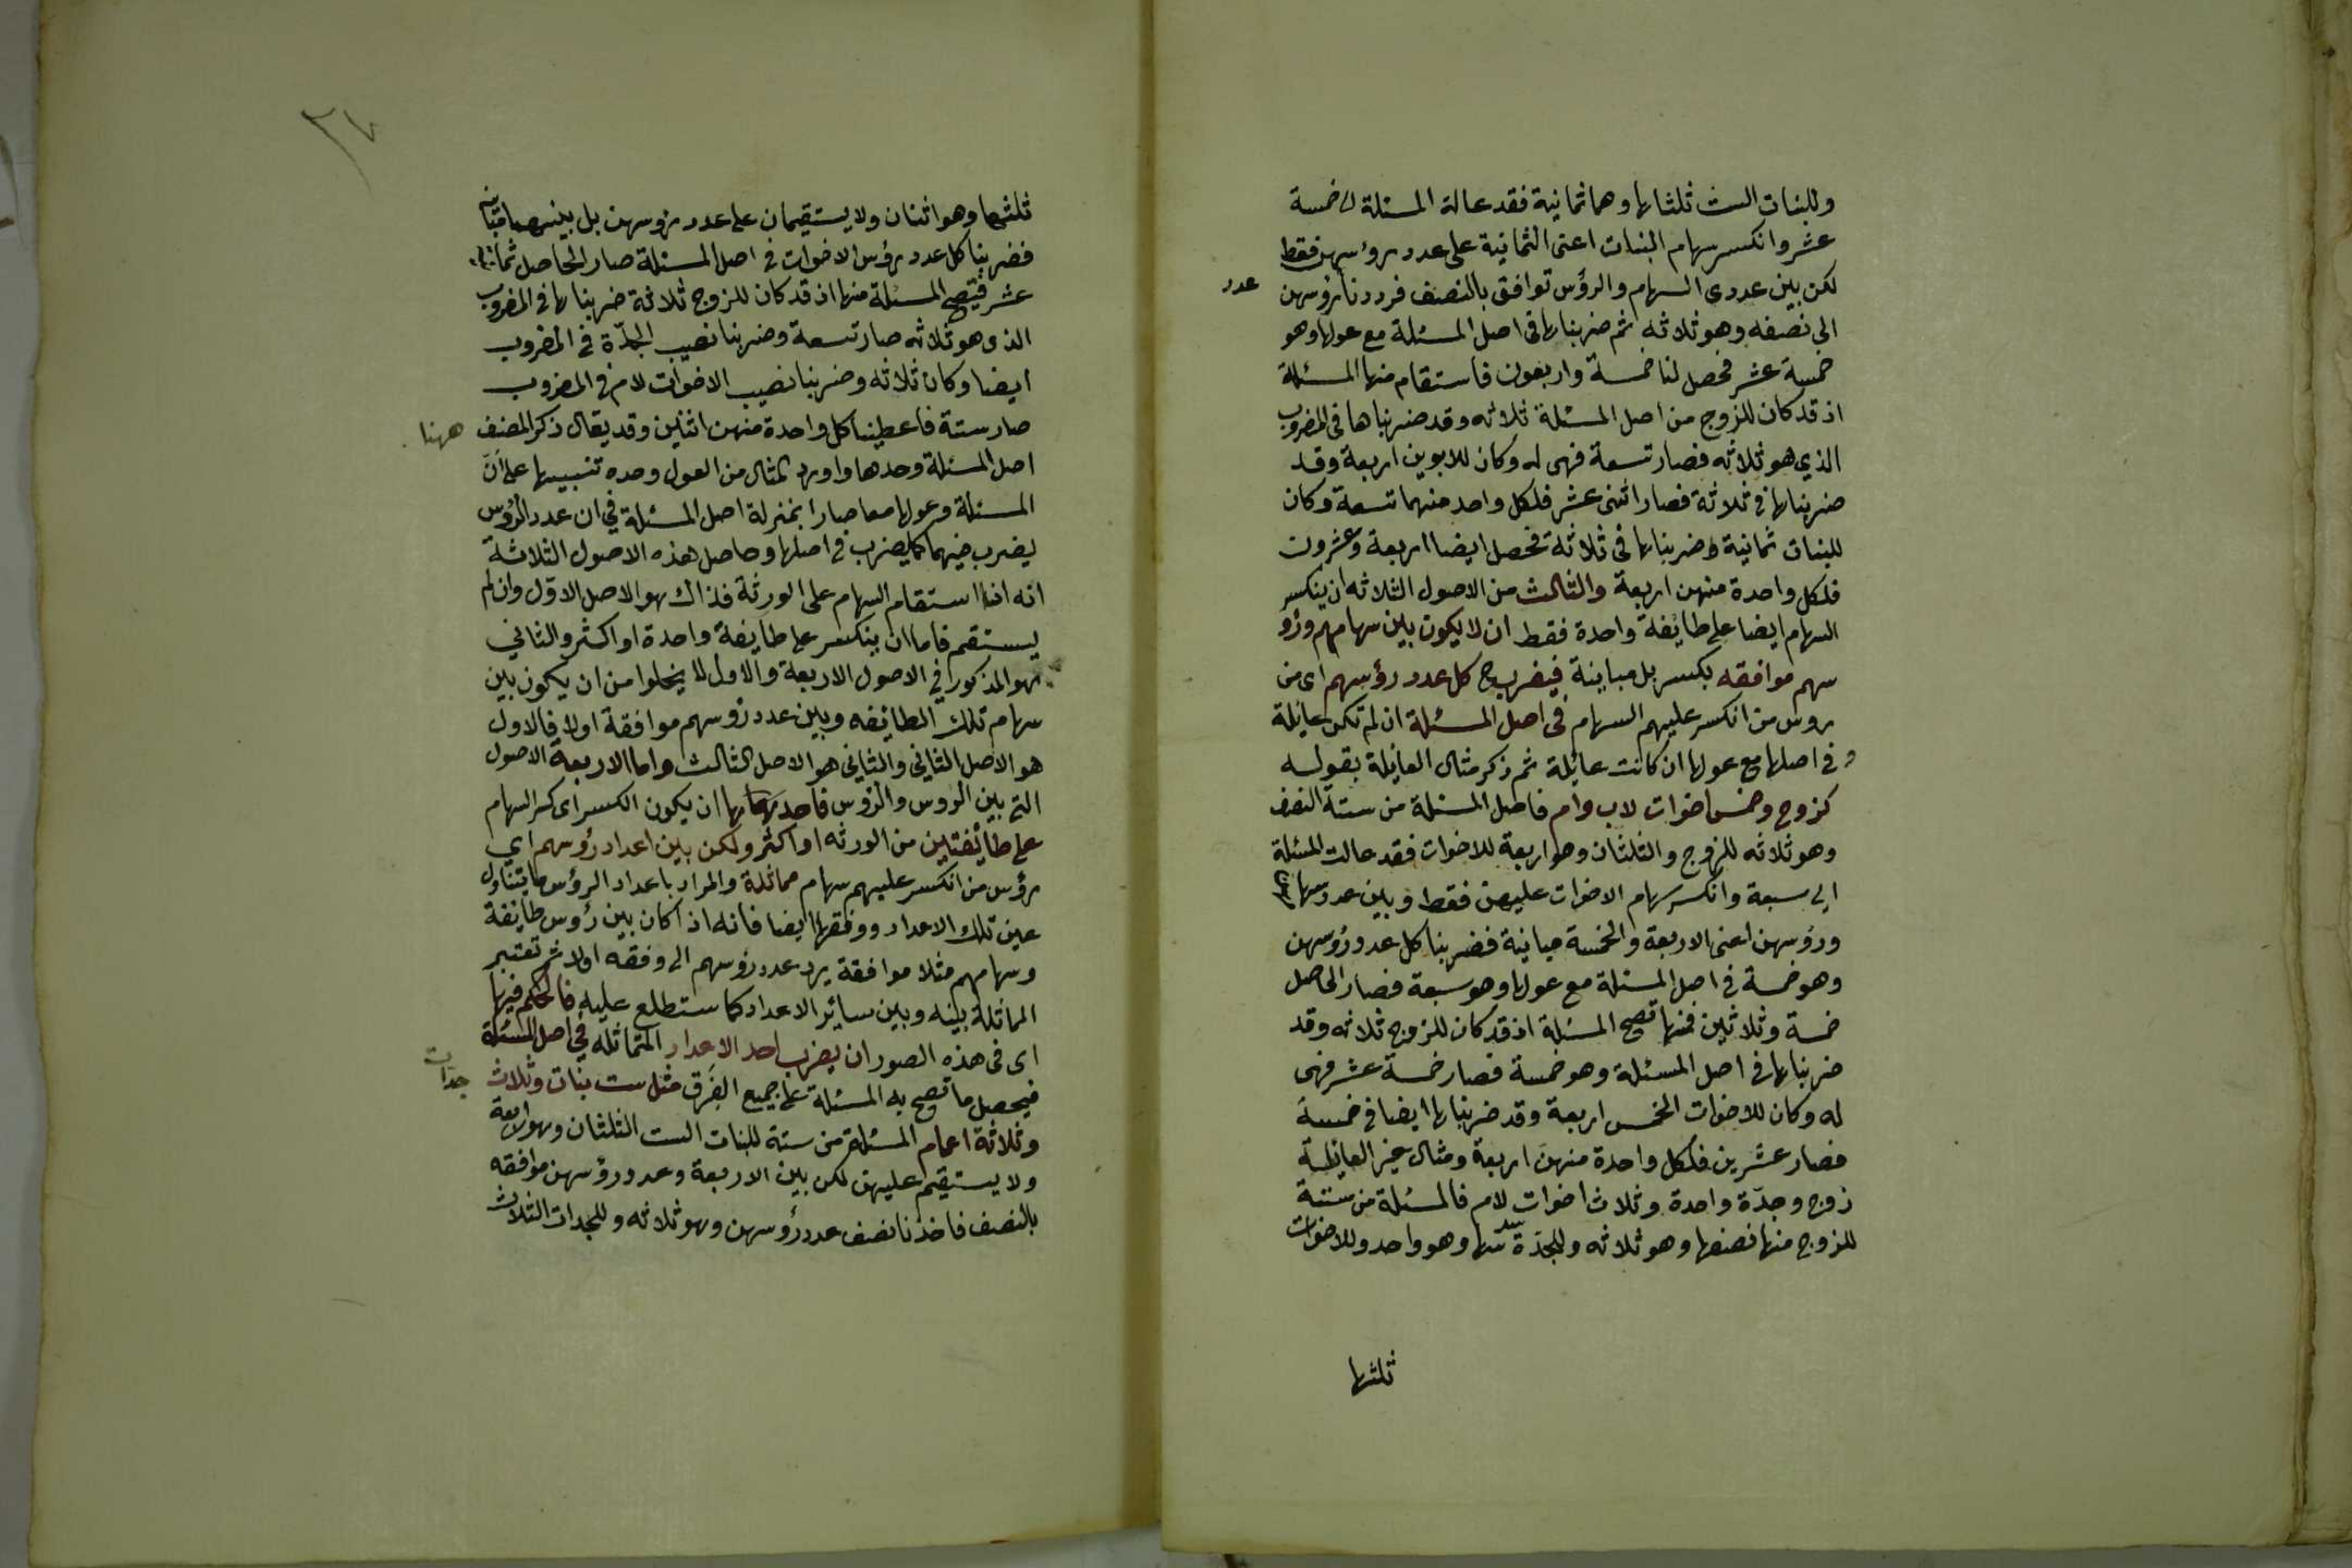 وللبنات الست ثلثاها وهما ثمانية فقد عالة المسئلة الى خمسة
عشر وانكسر سهام البنات اعنى الثمانية على عدد رؤسهن فقط
لكن بين عددى السهام والرؤس توافق بالنصف فرددنا رؤسهن
عدد
الى نصفه وهو ثلاثه ثم ضربناها فى اصل المسئلة مع عولها وهو
خمسة عشر فحصل لنا خمسة واربعون فاستقام منها المسئلة
اذ قد كان للزوج من اصل المسئلة ثلاثه وقد ضربناها فى المضروب
الذي هو ثلاثه فصار تسعة فهى له وكان للابوين اربعة وقد
ضربناها فى ثلاثة فصارا ثنى عشر فلكل واحد منهما تسعة وكان
للبنات ثمانية وضربناها فى ثلاثة فحصل ايضا اربعة وعشرون
فلكل واحدة منهن اربعة والثالث من الاصول الثلاثه ان ينكسر
السهام ايضا على طايفة واحدة فقط ان لا يكون بين سهامهم ورؤ
سهم موافقه بكسر بل مباينة فيضرب ح كل عدد رؤسهم اى من
روس من انكسر عليهم السهام فى اصل المسئلة ان لم تكن عايلة
و فى اصلها مع عولها ان كانت عائلة ثم ذكر مثال العايلة بقوله
كزوج وخمس اخوات لاب وام فاصل المسئلة من ستة النصف
وهو ثلاثه للزوج والثلثان وهو اربعة للاخوات فقد عالت المسئلة
الى سبعة وانكسر سهام الاخوات عليهن فقط وبين عدد سهامهن
ورؤسهن اعنى الاربعة والخمسة مباينة فضربنا كل عدد رؤسهن
وهو خمسة فى اصل المسئلة مع عولها وهو سبعة فصار الحاصل
خمسة وثلاثين فمنها تصح المسئلة اذ قد كان للزوج ثلاثه وقد
ضربناها فى اصل المسئلة وهو خمسة فصار خمسة عشر فهى
له وكان للاخوات الخمس اربعة وقد ضربناها ايضا فى خمسة
فصار عشرين فلكل واحدة منهن اربعة ومثال غير العايلة
زوج وجدّة واحدة وثلاث اخوات لام فالمسئلة من ستة
للزوج منها نصفها وهو ثلاثه وللجدّة سدسها وهو واحد وللاخوات
ثلثها
٢٧
ثلثها وهو اثنان ولا يستقيمان على عدد رؤسهن بل بينهما مباينه
فضربنا كل عدد رؤس الاخوات فى اصل المسئلة صار الحاصل ثمانية
عشر فتصح المسئلة منها اذ قد كان للزوج ثلاثة ضربناها فى المضروب
الذى هو ثلاثه صار تسعة وضربنا نصيب الجدّة فى المضروب
ايضا وكان ثلاثه وضربنا نصيب الاخوات لام فى المضروب
صار ستة فاعطينا كل واحدة منهن اثنين وقد يقال ذكر المصنف
ههنا
اصل المسئلة وحدها واورد المثال من العول وحده تنبيها على انّ
المسئلة وعولها معا صارا بمنزلة اصل المسئلة في ان عدد الرؤس
يضرب فيهما كما يضرب فى اصلها وحاصل هذه الاصول الثلاثة
انه اذا استقام السهام على الورثة فذاك هو الاصل الاوّل وان لم
يستقم فاما ان ينكسر على طايفة واحدة او اكثر والثاني
هو المذكور في الاصول الاربعة والاول لا يخلوا من ان يكون بين
سهام تلك الطائفه وبين عدد رؤسهم موافقة اولا فالاول
هو الاصل الثاني والثاني هو الاصل الثالث واما الاربعة الاصول
التى بين الروس والرؤس فاحدها ان يكون الكسر اى كسر السهام
على طائفتين من الورثه او اكثر ولكن بين اعداد رؤسهم اي
رؤس من انكسر عليهم سهام مماثلة والمراد باعداد الرؤس ما يتناول
عين تلك الاعداد ووفقها ايضا فانه اذا كان بين رؤس طايفة
وسهامهم مثلا موافقة يرد عدد رؤسهم الى وفقه اولا ثم تعتبر
المماثلة بينه وبين سائر الاعداد كما ستطلع عليه فالحكم فيها
اى فى هذه الصور ان يضرب احد الاعداد المتماثله في اصل المسئلة
فيحصل ما تصح به المسئلة على جميع الفِرَق مثل ست بنات وثلاث
جدات
وثلاثة اعمام المسئلة من ستة للبنات الست الثلثان وهو اربعة
ولا يستقيم عليهن لكن بين الاربعة وعدد رؤسهن موافقه
بالنصف فاخذنا نصف عدد رؤسهن وهو ثلاثه وللجدات الثلاث